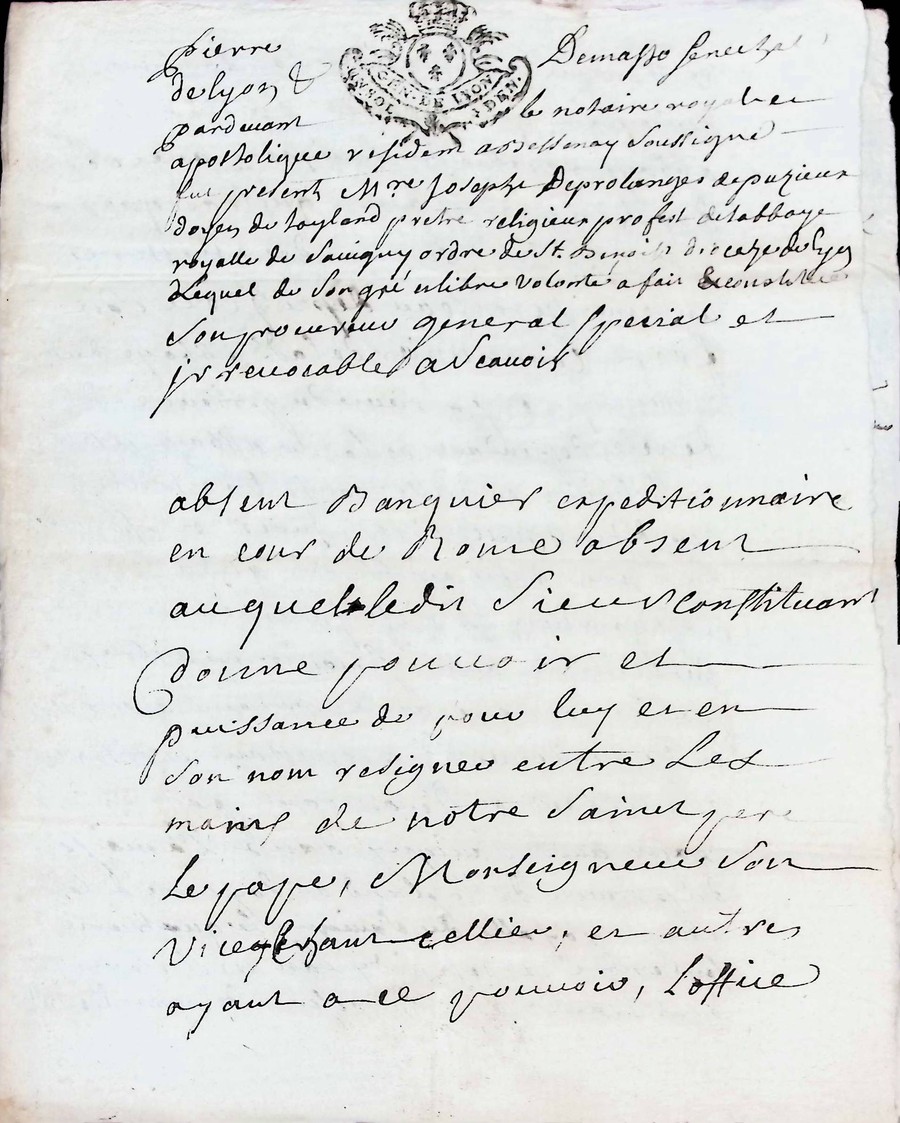 Pierre Demasso senechal
GEN. DE LYON
de Lyon &
pardevant le notaire royal et
apostolique résident a Bessenay soussigné
fut present Mre Joseph Deprolanges depuzieux
doyen de tayland pretre religieux profest de labbaye
royalle de Savigny ordre de St. Benoist dioceze de Lyon
Lequel de son gré et libre volonté a fait & constitué
son procureur general special et
jrrevocable a scavoir
absent Banquier expeditionnaire
en cour de Rome absent
auquel ledit sieur constituant
donne pouvoir et
puissance de pour luy et en
son nom resigner entre Les
mains de notre saint pere
Le pape, Monseigneur son
Vice chancellier, et autres
ayant a ce pouvoir, Loffice